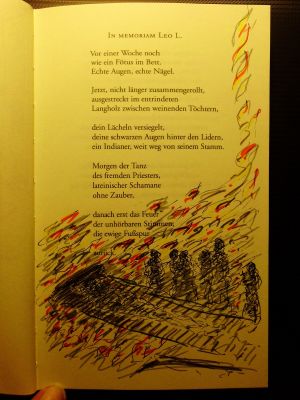 In memoriam Leo L.
Vor einer Woche noch
wie ein Fötus im Bett.
Echte Augen, echte Nägel.
Jetzt, nicht länger zusammengerollt,
ausgestreckt im entrindeten
Langholz zwischen weinenden Töchtern,
dein Lächeln versiegelt,
deine schwarzen Augen hinter den Lidern,
ein Indianer, weit weg von seinem Stamm.
Morgen der Tanz
des fremden Priesters,
lateinischer Schamane
ohne Zauber,
danach erst das Feuer
der unhörbaren Stimmen,
die ewige Fußspur
zurück.